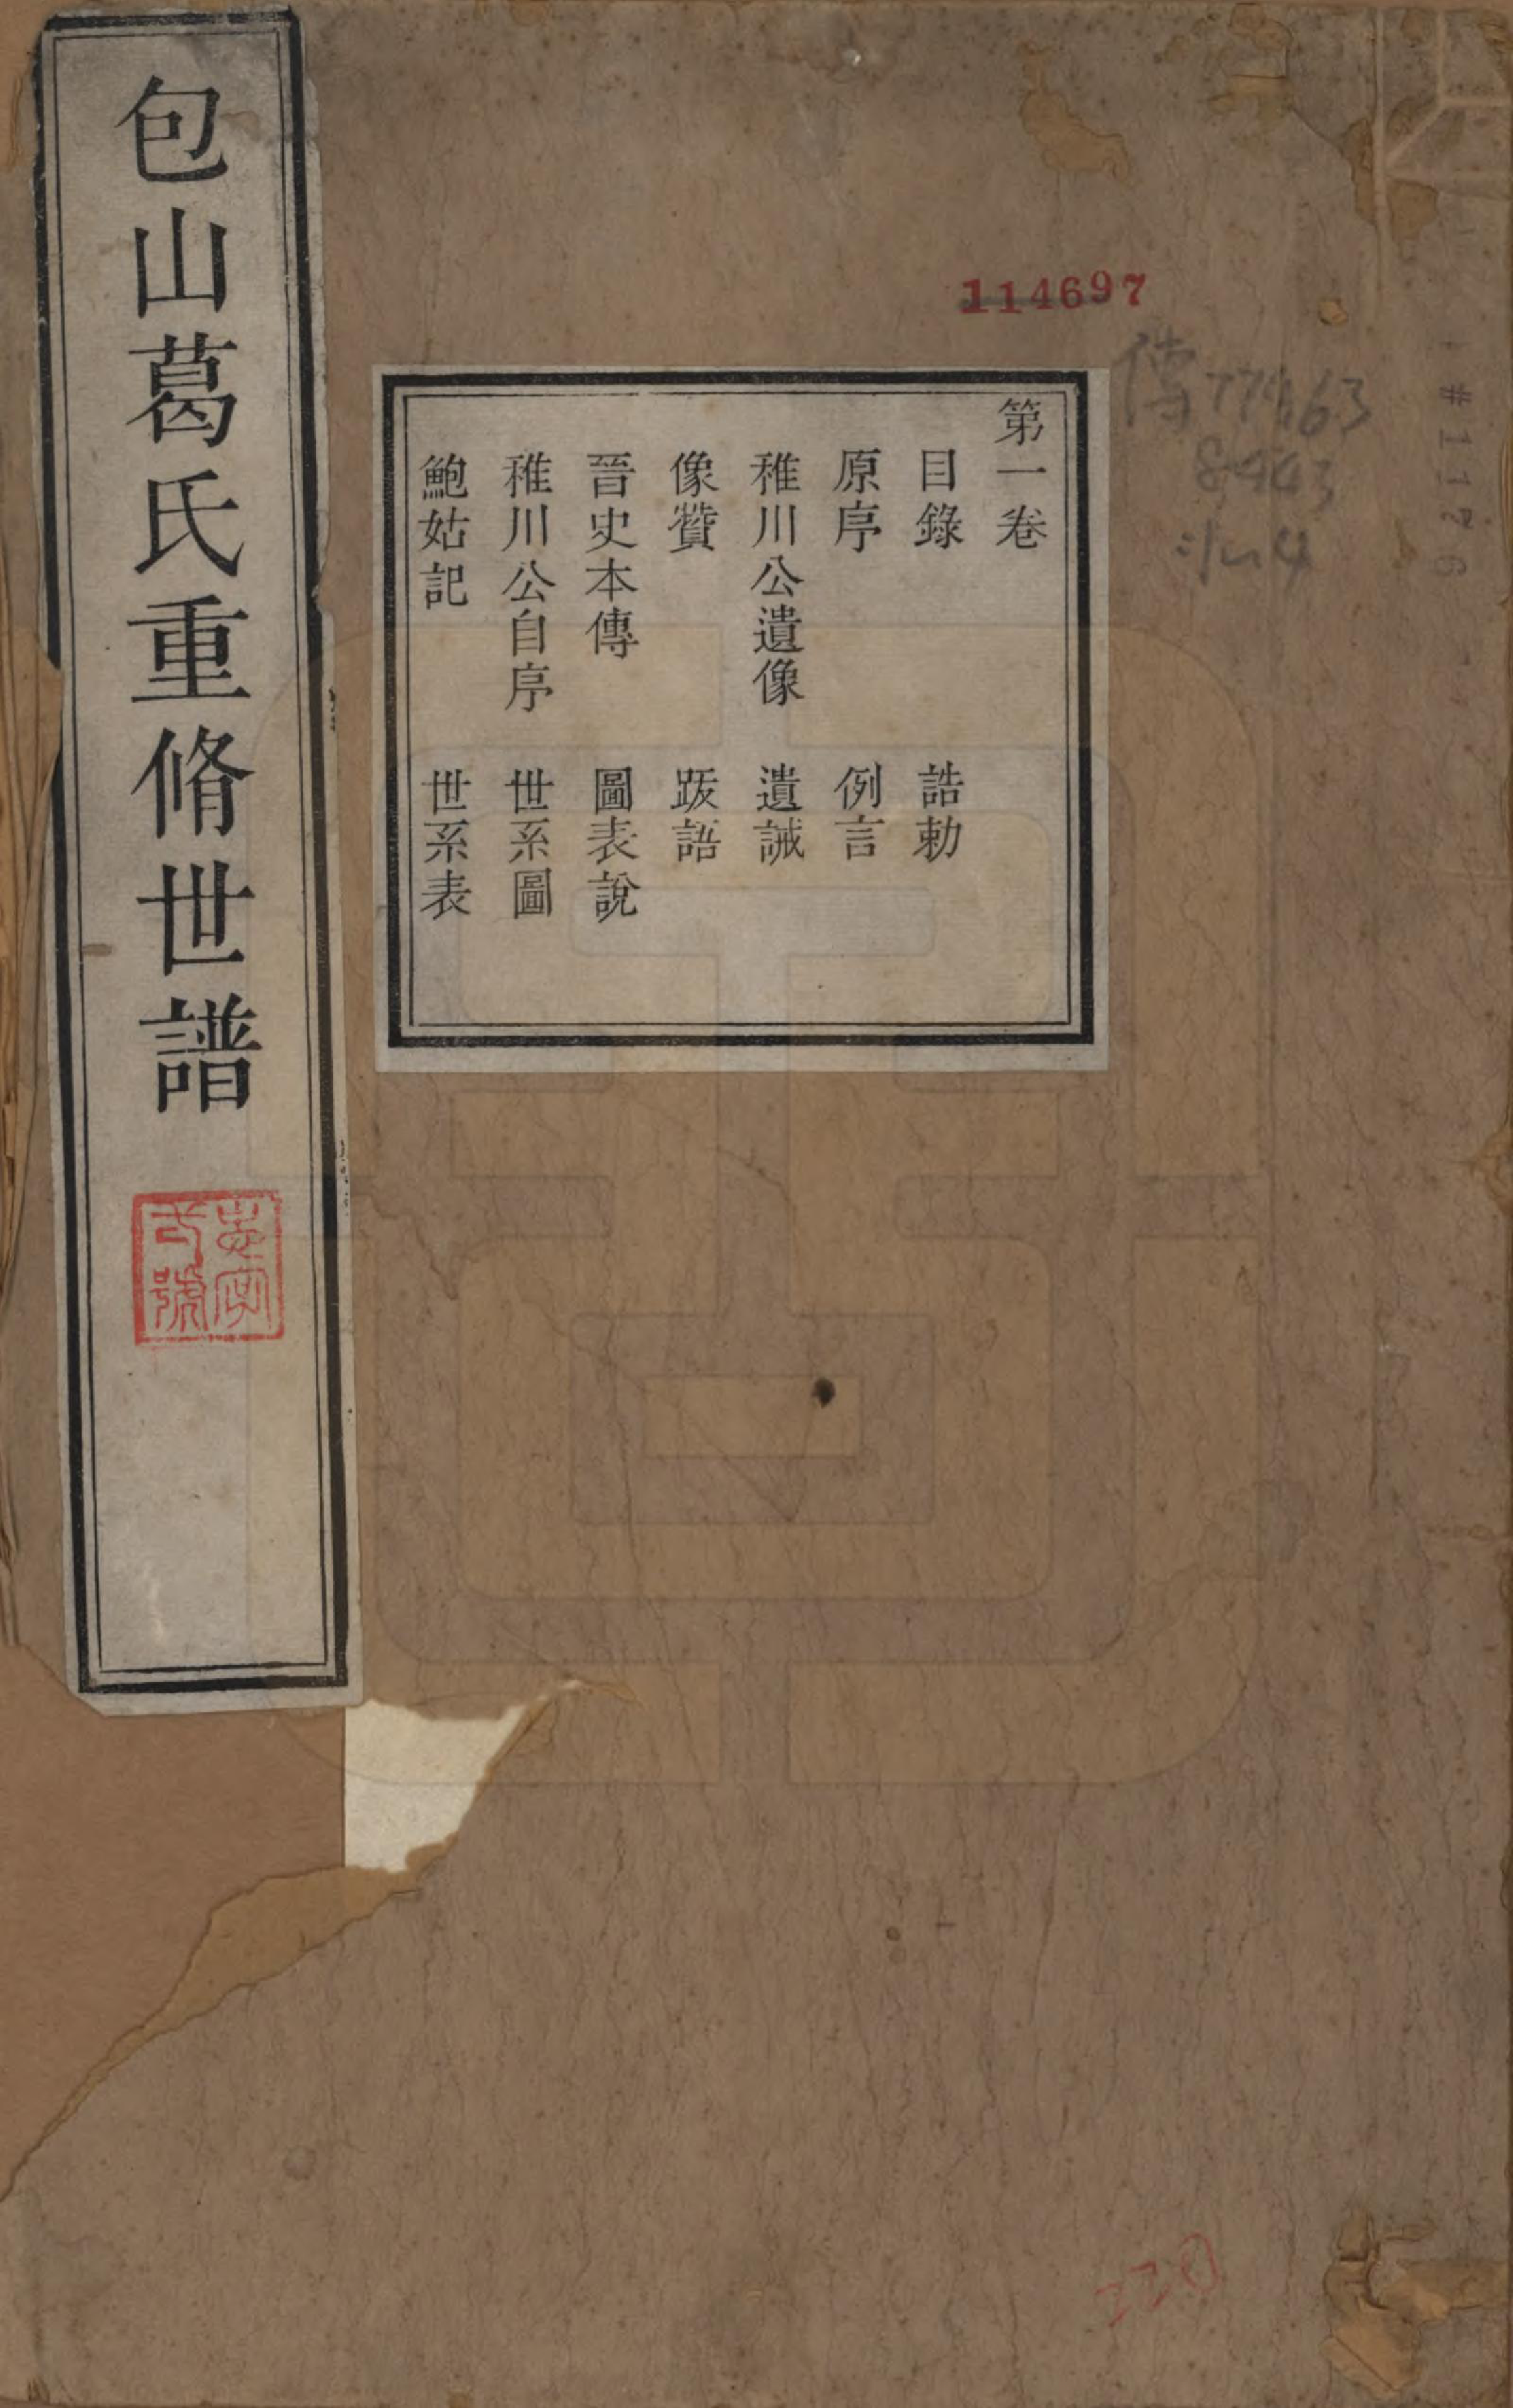 包山葛氏重脩世譜
志字弍號
114697
第一卷
目錄 誥勅
原序 例言
稚川公遺像 遺誡
像贊 跋語
晉史本傳 圖表說
稚川公自序 世系圖
鮑姑記 世系表
傳779.63
8443